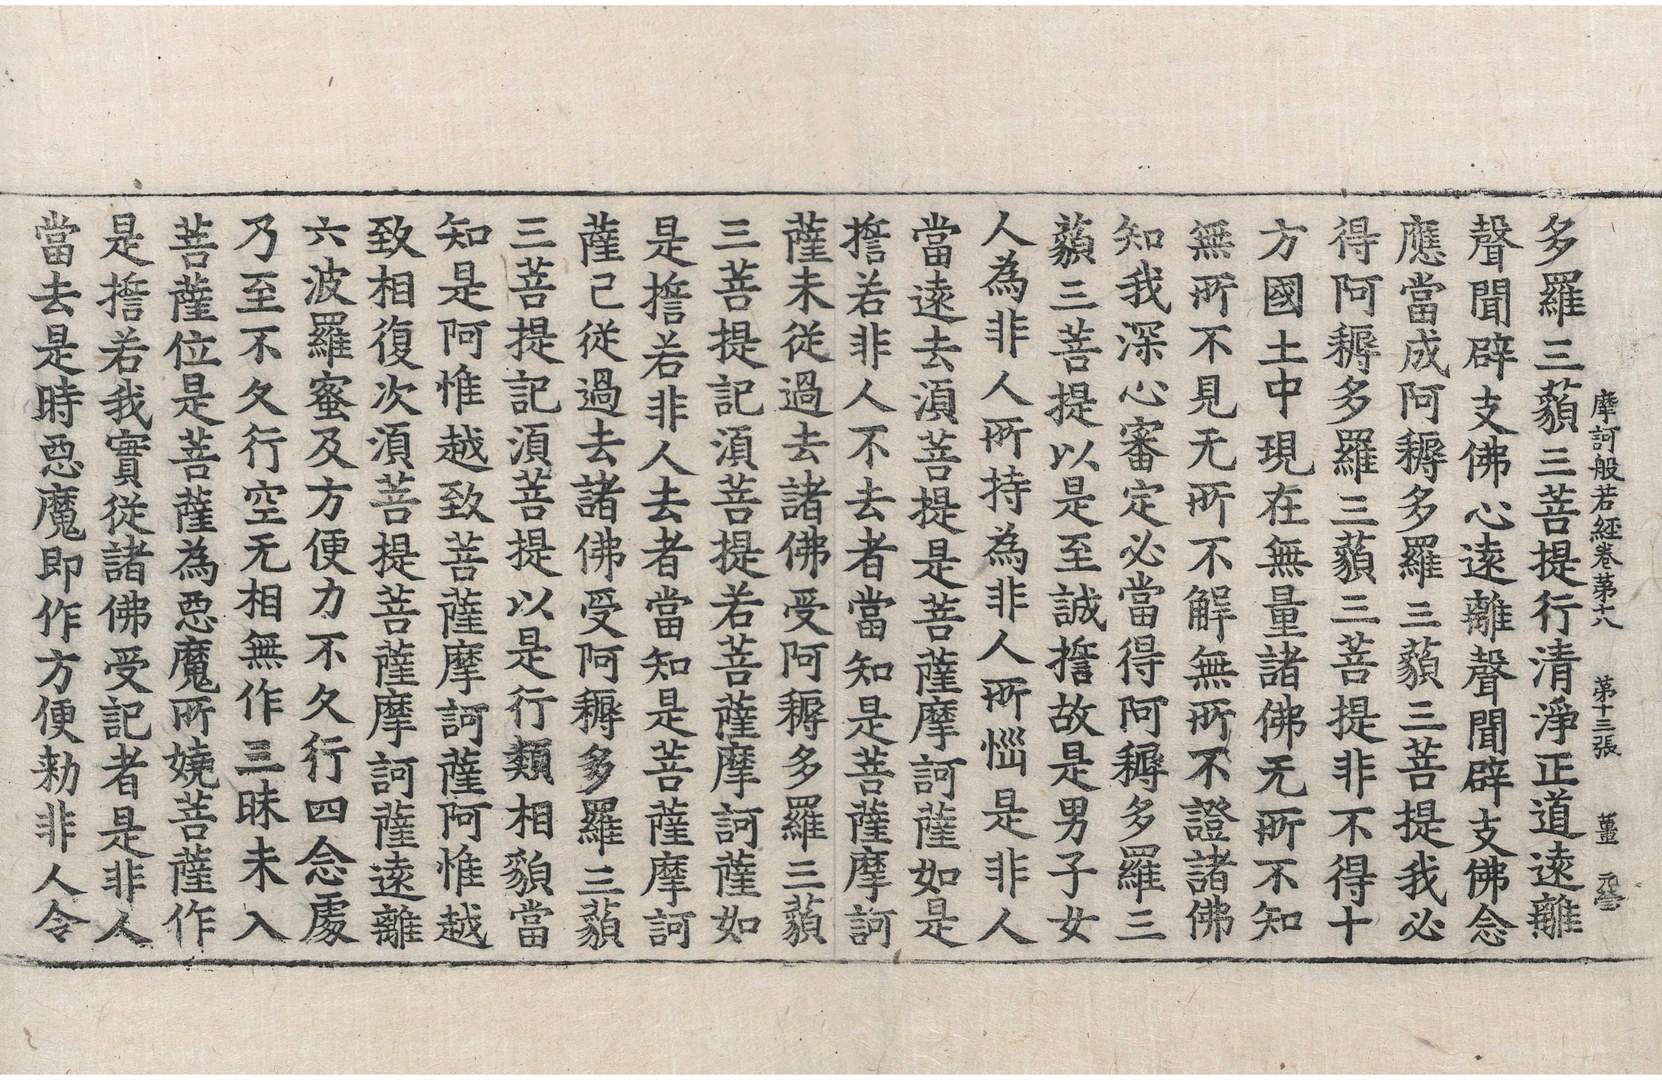 摩訶般若經卷第十八 第十三張 薑
多羅三藐三菩提行清淨正道遠離
聲聞辟支佛心遠離聲聞辟支佛念
應當成阿耨多羅三藐三菩提我必
得阿耨多羅三藐三菩提非不得十
方國土中現在無量諸佛无所不知
無所不見无所不解無所不證諸佛
知我深心審定必當得阿耨多羅三
藐三菩提以是至誠擔故是男子女
人為非人所持為非人所惱是非人
當遠去湏菩提是菩薩摩訶薩如是
擔若非人不去者當知是菩薩摩訶
薩未從過去諸佛受阿耨多羅三藐
三菩提記湏菩提若菩薩摩訶薩如
是擔若非人去者當知是菩薩摩訶
薩已從過去諸佛受阿耨多羅三藐
三菩提記湏菩提以是行類相貌當
知是阿惟越致菩薩摩訶薩阿惟越
致相復次湏菩提菩薩摩訶薩遠離
六波羅蜜及方便力不久行四念處
乃至不久行空无相無作三昧未入
菩薩位是菩薩為惡魔所嬈菩薩作
是擔若我實從諸佛受記者是非人
當去是時惡魔即作方便勑非人令